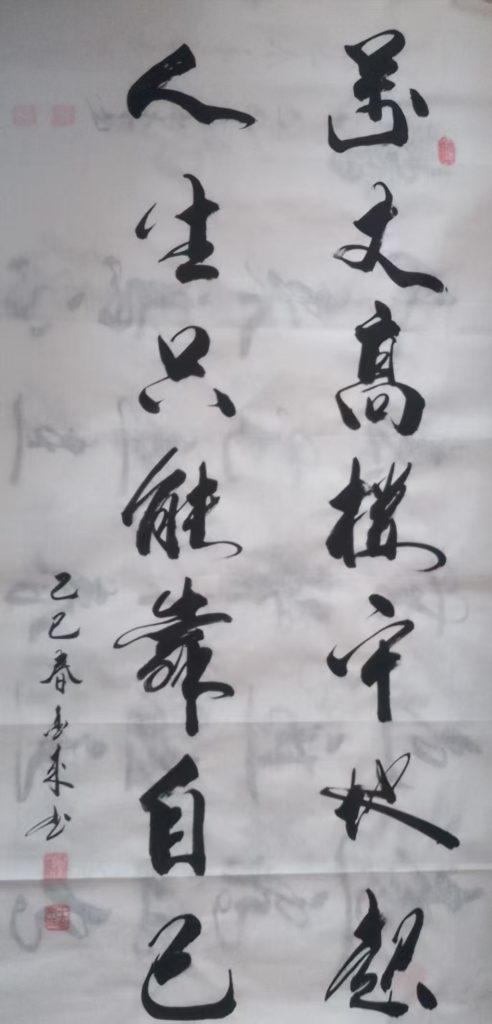 萬丈高楼平地起
人生只能靠自己
乙巳春来书